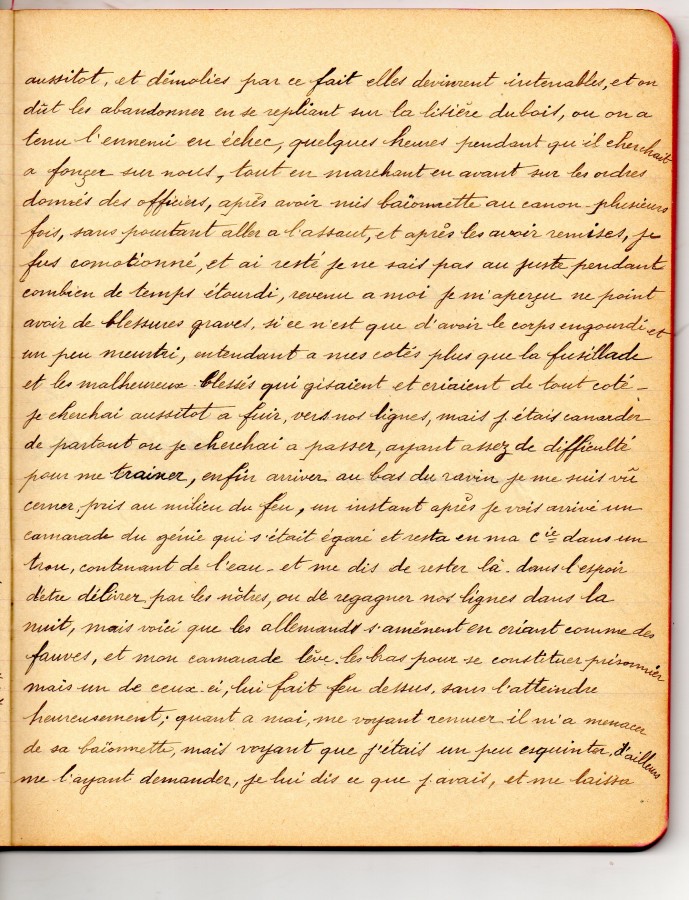 aussitot, et démolies par ce fait elles devinrent intenables, et on
dût les abandonner en se repliant sur la lisière du bois, ou on a
tenu l'ennemi en échec, quelques heures pendant qu'il cherchait
a fonçer sur nous, tout en marchant en avant sur les ordres
donnés des officiers, après avoir mis baïonnette au canon plusieurs
fois, sans pourtant aller a l'assaut, et après les avoir remises, je
fus comotionné, et ai resté je ne sais pas au juste pendant
combien de temps étourdi, revenu a moi je m'aperçu ne point
avoir de blessures graves, si ce n'est que d'avoir le corps engourdi et
un peu meurtri, entendant a mes cotés plus que la fusillade
et les malheureux blessés qui gisaient et criaient de tout coté -
je cherchai aussitot a fuir, vers nos lignes, mais j'étais canarder
de partout ou je cherchai a passer, ayant assez de difficulté
pour me trainer, enfin arriver au bas du ravin je me suis vû
cerner, pris au milieu du feu, un instant après je vois arrivé un
camarade du génie qui s'était égaré et resta en ma Cie dans un
trou, contenant de l'eau - et me dis de rester là - dans l'espoir
d'etre délivrer par les nôtres, ou de regagner nos lignes dans la
nuit, mais voiçi que les allemands s'amènent en criant comme des
fauves, et mon camarade lève les bras pour se constituer prisonnier
mais un de ceux-ci, lui fait feu dessus, sans l'atteindre
heureusement; quant a moi, me voyant remuer il m'a menacer
de sa baïonnette, mais voyant que j'étais un peu esquinter, d'ailleurs
me l'ayant demander, je lui dis ce que j'avais, et me laissa